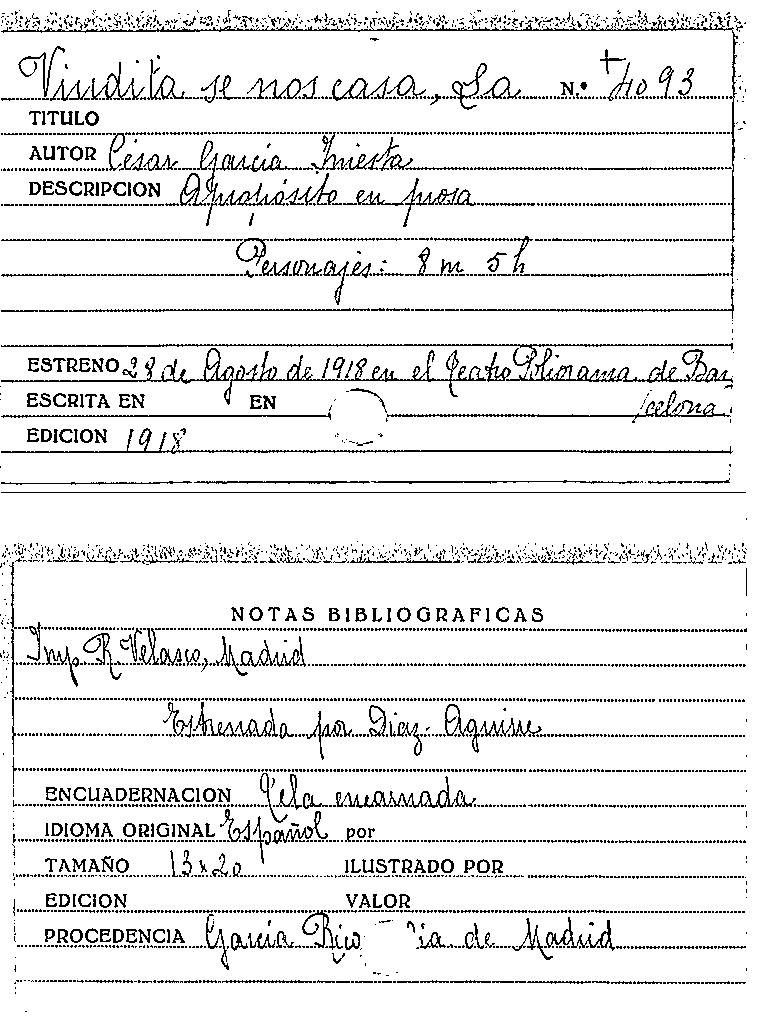 Viudita se nos casa, La N.º + 4093
TITULO
AUTOR César García Iniesta
DESCRIPCION Apropósito en prosa
Personajes: 8 m 5 h
ESTRENO 28 de Agosto de 1918 en el Teatro Poliorama de Bar
ESCRITA EN EN /celona
EDICION 1918
NOTAS BIBLIOGRAFICAS
Imp. R. Velasco, Madrid
Estrenada por Diaz-Aguirre
ENCUADERNACION Tela encarnada
IDIOMA ORIGINAL Español por
TAMAÑO 13 x 20 ILUSTRADO POR
EDICION VALOR
PROCEDENCIA García Rico ia de Madrid